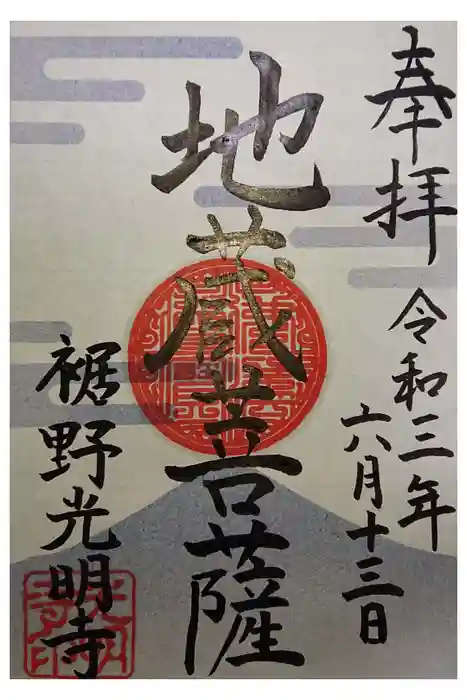 奉拝
令和三年
六月十三日
地蔵菩薩
裾野光明寺